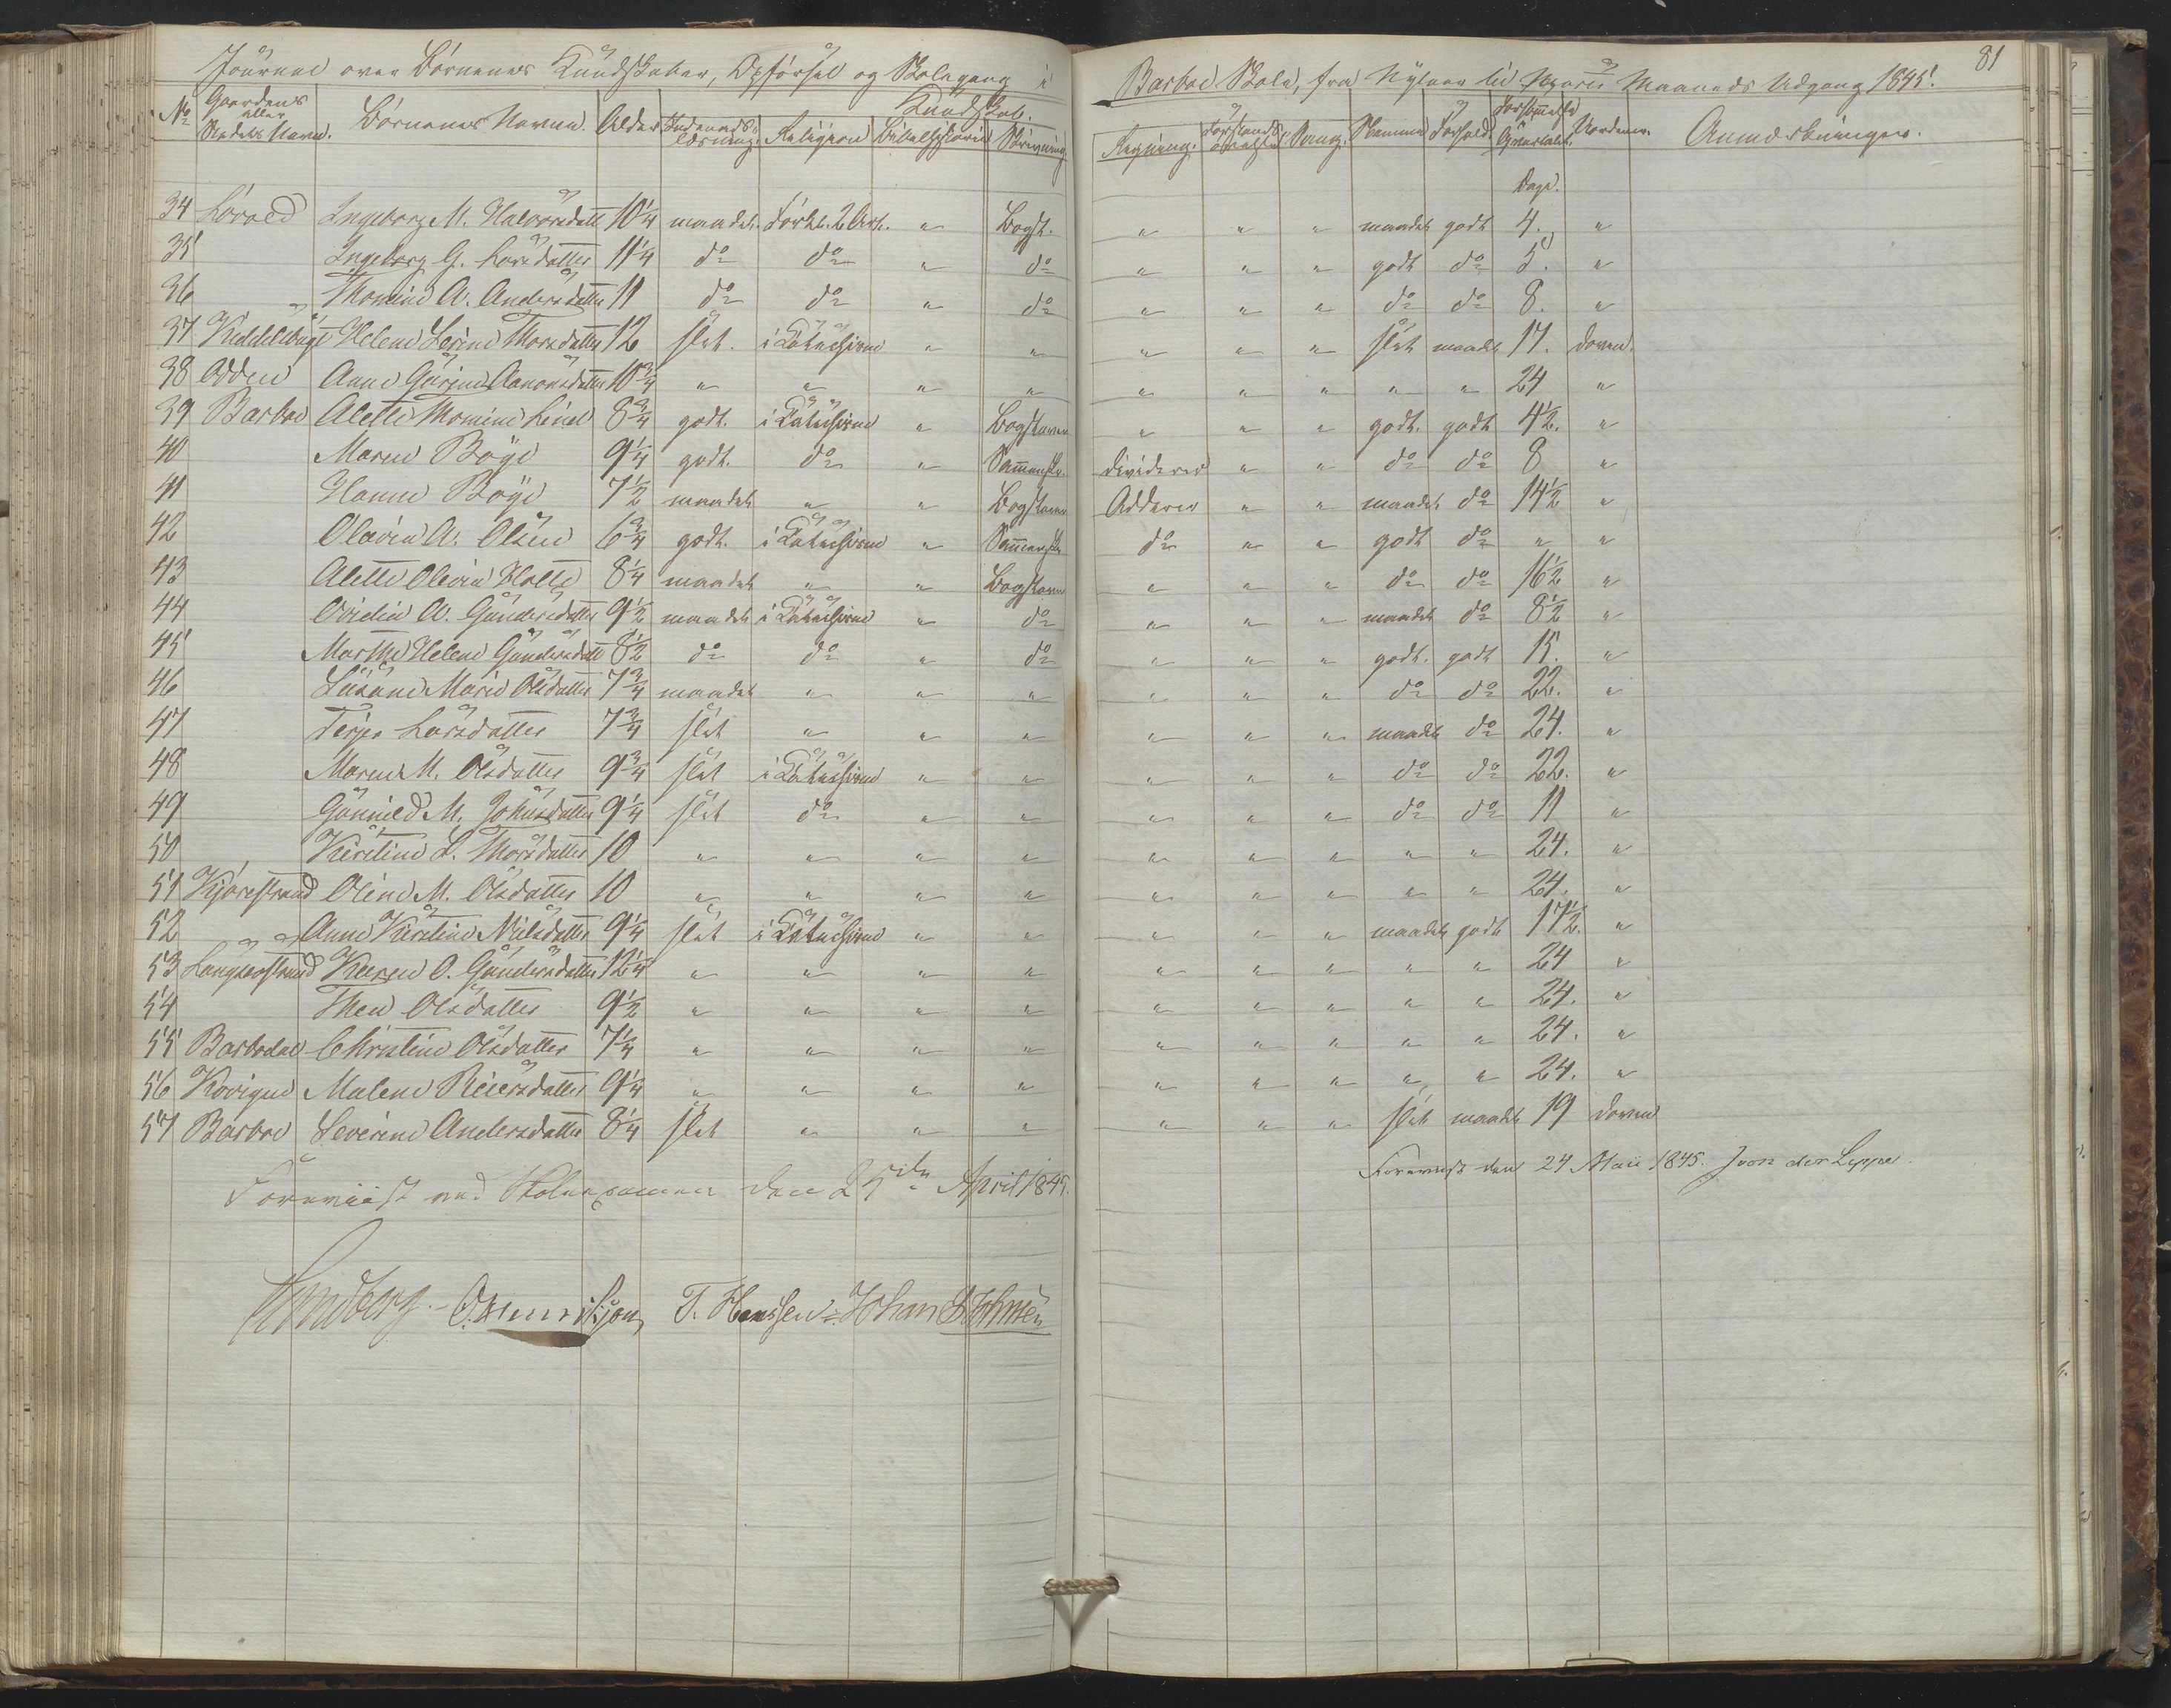 Journal over Børnenes Kundskaber, Opførsel og Skolegang i Barboe Skole, fra Nytaar til Marts Maaneds Udgang 1845. 81
No Gaardens eller Stedets Navn. Børnenes Navne. Alder Indenads-læsning. Religion Kundskab. Bibelhistorie Skrivning. Regning. Forstands øvelse Sang. Nemme Forhold. Forsømmelse Qvartalet. Uorden. Anmærkninger.
Dage.
34 Løvold Ingeborg M. Halvorsdatt 10¼ maadel. Forkl. 2 Art. " Bogst. " " " maadel godt 4. "
35 Ingeborg G. Larsdatter 11¼ do do " do " " " godt do 5. "
36 Thomine A. Andersdatter 11 do do " do " " " do do 8. "
37 Kiddelsbugt Helene Severine Thorsdatter 12 slet. i Katechisme " " " " " slet maadel 17. doven.
38 Odden Anne Gurine Aanonsdatter 10¾ " " " " " " " " " 24 "
39 Barboe Alette Thomine Lind 8¾ godt. i Katechisme " Bogstaver " " " godt. godt 4½. "
40 Maren Bøye 9¼ godt. do " Sammenskr. Dividerer " " do do 8 "
41 Hanne Bøye 7½ maadel " " Bogstaver Adderer " " maadel do 14½ "
42 Olavia A. Olsen 6¾ godt. i Katechisme " Sammenskr do " " godt do " "
43 Alette Olevia Holte 8¼ maadel " " Bogstaver " " " do do 16½ "
44 Ovidia A. Gundersdatter 9½ maadel i Katechisme " do " " " maadel do 8½ "
45 Marthe Helene Gundersdatt 8½ do do " do " " " godt. godt 15. "
46 Susane Marie Olsdatter 7¾ maadel " " " " " " do do 22. "
47 Terjer Larsdatter 7¾ slet " " " " " " maadel do 24. "
48 Maren M. Olsdatter 9¾ slet i Katechisme " " " " " do do 22. "
49 Gunnild M. Johnsdatter 9¼ slet do " " " " " do do 11 "
50 Kirstine L. Thorsdatter 10 " " " " " " " " " 24. "
51 Kjørrestrand Oline M. Olsdatter 10 " " " " " " " " " 24. "
52 Anne Kirstine Nielsdatter 9¼ slet i Katechisme " " " " " maadel godt 17½. "
53 Langsæstrand Karen O. Gundersdatter 12¼ " " " " " " " " " 24 "
54 Thea Olsdatter 9½ " " " " " " " " " 24. "
55 Barbodal Christine Olsdatter 7¼ " " " " " " " " " 24. "
56 Kovigen Malene Reiersdatter 9¼ " " " " " " " " " 24. "
57 Barboe Severine Andersdatter 8¼ slet " " " " " " slet maadel 19 doven
Foreviist ved Skoleexamen den 25de April 1845.
Forevist den 24 Maii 1845. J von der Lippe.
T. Hansen Johan